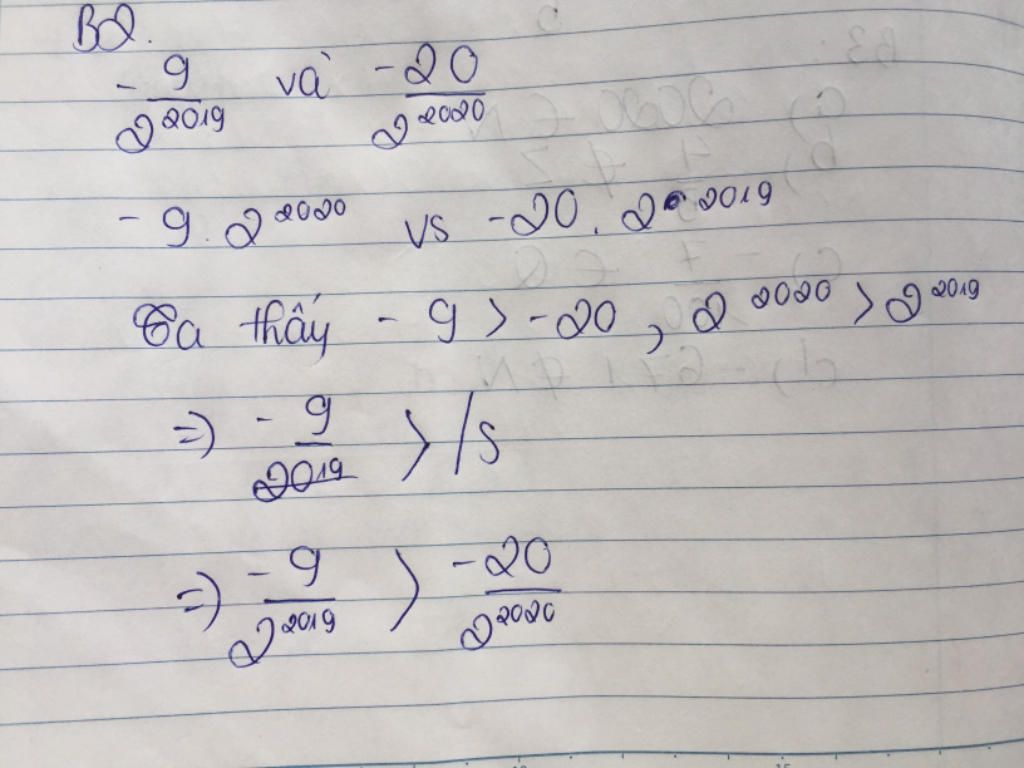 B2.
-9/2^2019 và -20/2^2020
-9 . 2^2020 vs -20 . 2^2019
Ta thấy -9 > -20 , 2^2020 > 2^2019
=> -9/2019 > /S
=> -9/2^2019 > -20/2^2020